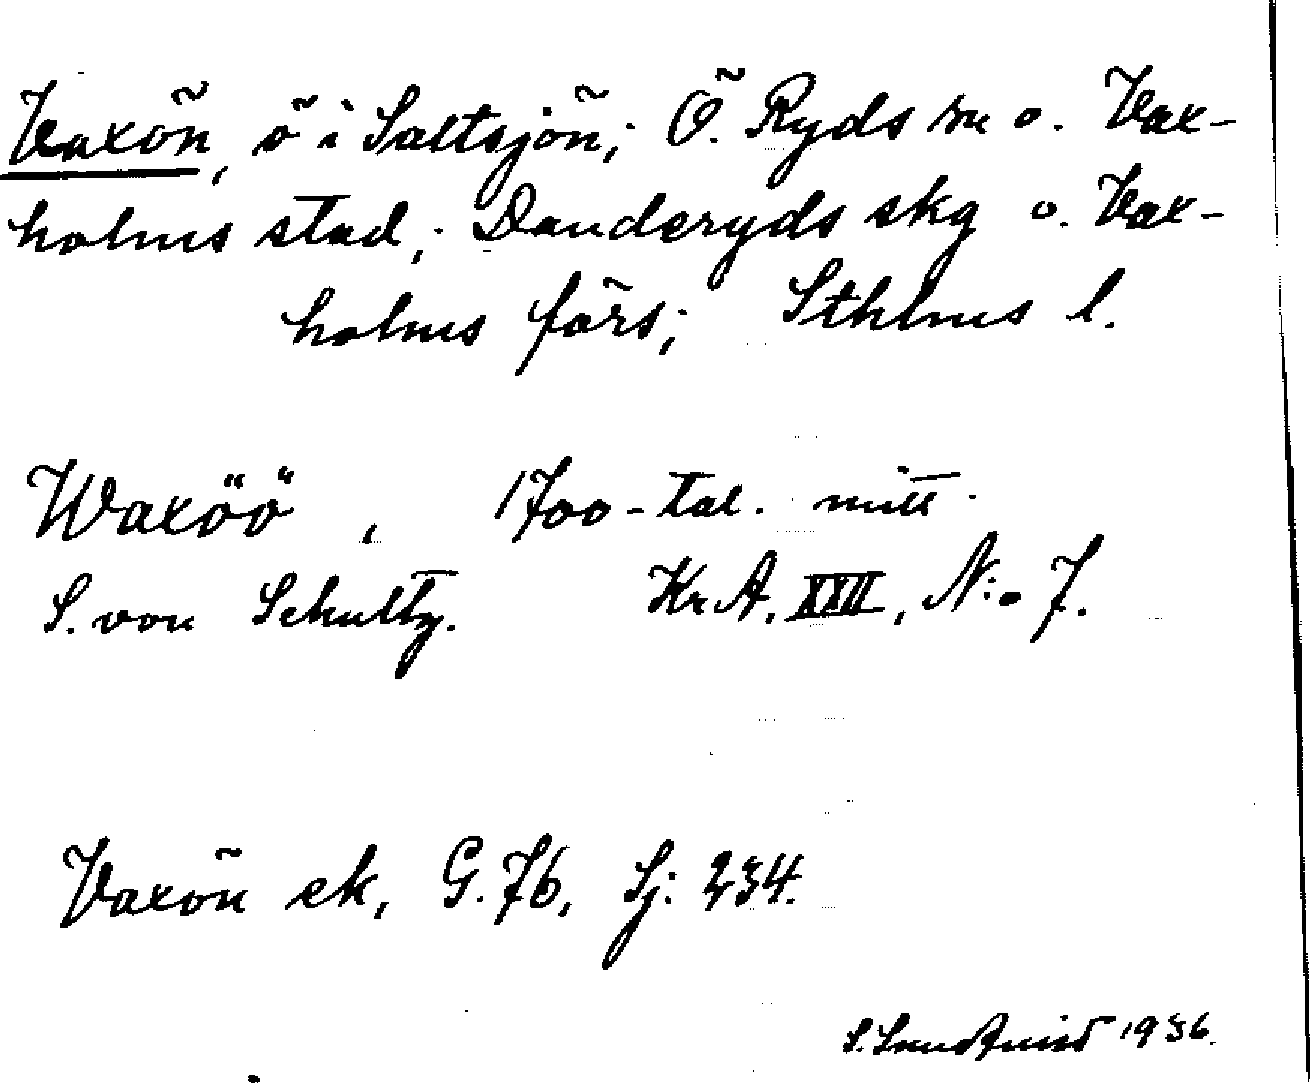 Vaxön, ö i Saltsjön; Ö. Ryds sn o. Vax-
holms stad; Danderyds skg o. Vax-
holms förs; Sthlms l.
Waxöö, 1700-tal. mitt.
S. von Schultz. Kr A. XXII, N:o 7.
Vaxön ek, G.76, Sj: 234.
S. 1936.